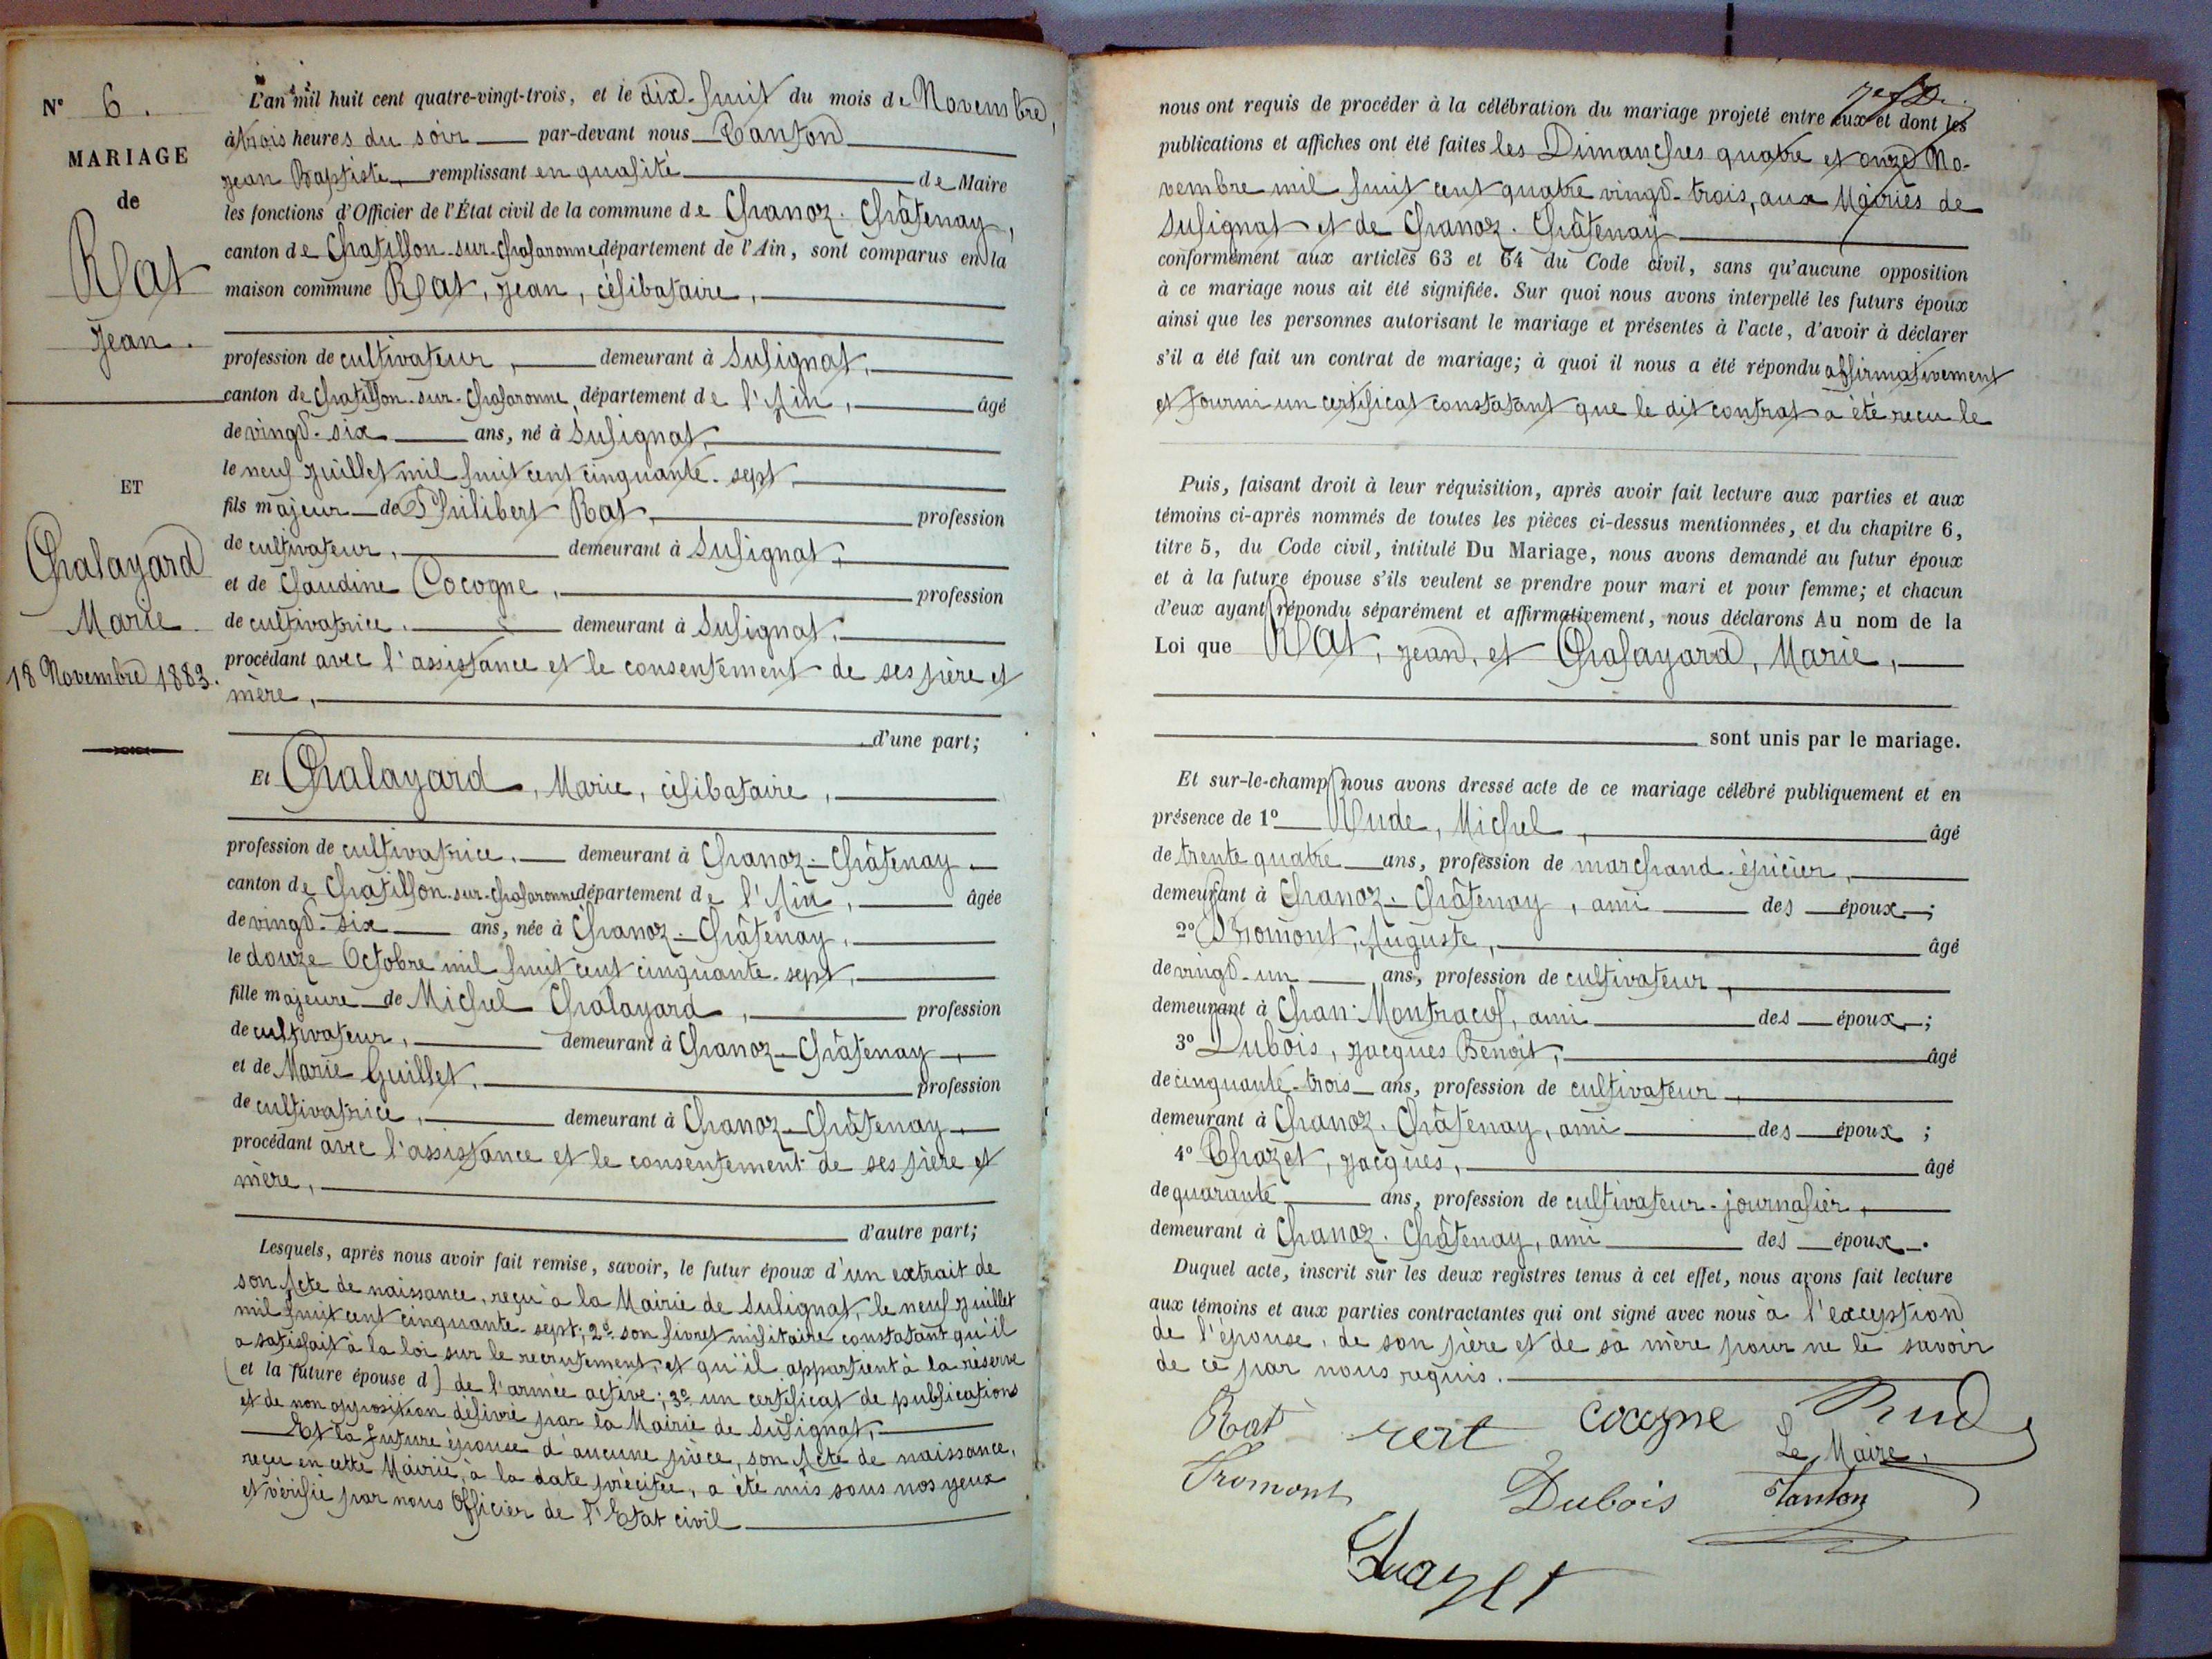 N° 6.
MARIAGE
de
Rat
Jean.
ET
Chalayard
Marie
18 Novembre 1883.
L'an mil huit cent quatre-vingt-trois, et le dix-huit du mois de Novembre,
à trois heures du soir par-devant nous
Jean Baptiste, remplissant en qualité de Maire
les fonctions d'Officier de l'État civil de la commune de Chanoz-Châtenay,
canton de Chatillon-sur-Chalaronne, département de l'Ain, sont comparus en la
maison commune Rat, Jean, célibataire,
profession de cultivateur, demeurant à Sulignat,
canton de Chatillon-sur-Chalaronne, département de l'Ain, âgé
de vingt-six ans, né à Sulignat,
le neuf Juillet mil huit cent cinquante-sept,
fils majeur de Philibert Rat, profession
de cultivateur, demeurant à Sulignat,
et de Claudine Cocogne, profession
de cultivatrice, demeurant à Sulignat,
procédant avec l'assistance et le consentement de ses père et
mère,
d'une part;
Et Chalayard, Marie, célibataire,
profession de cultivatrice, demeurant à Chanoz-Châtenay,
canton de Chatillon-sur-Chalaronne département de l'Ain, âgée
de vingt-six ans, née à Chanoz-Châtenay,
le douze Octobre mil huit cent cinquante-sept,
fille majeure de Michel Chalayard, profession
de cultivateur, demeurant à Chanoz-Châtenay,
et de Marie Guillet, profession
de cultivatrice, demeurant à Chanoz-Châtenay,
procédant avec l'assistance et le consentement de ses père et
mère,
d'autre part;
Lesquels, après nous avoir fait remise, savoir, le futur époux d'un extrait de
son Acte de naissance, reçu à la Mairie de Sulignat, le neuf Juillet
mil huit cent cinquante-sept; 2° son livret militaire constatant qu'il
a satisfait à la loi sur le recrutement, et qu'il appartient à la réserve
(et la future épouse d) de l'armée active; 3° un certificat de publications
et de non opposition délivré par la Mairie de Sulignat,
Et la future épouse d'aucune pièce, son Acte de naissance,
reçu en cette Mairie, à la date précitée, a été mis sous nos yeux
et vérifié par nous Officier de l'Etat civil
nous ont requis de procéder à la célébration du mariage projeté entre eux et dont les
publications et affiches ont été faites les Dimanches quatre et onze No-
vembre mil huit cent quatre vingt-trois, aux Mairies de
Sulignat et de Chanoz-Châtenay
conformément aux articles 63 et 64 du Code civil, sans qu'aucune opposition
à ce mariage nous ait été signifiée. Sur quoi nous avons interpellé les futurs époux
ainsi que les personnes autorisant le mariage et présentes à l'acte, d'avoir à déclarer
s'il a été fait un contrat de mariage; à quoi il nous a été répondu affirmativement
et fourni un certificat constatant que le dit contrat a été reçu le
Puis, faisant droit à leur réquisition, après avoir fait lecture aux parties et aux
témoins ci-après nommés de toutes les pièces ci-dessus mentionnées, et du chapitre 6,
titre 5, du Code civil, intitulé Du Mariage, nous avons demandé au futur époux
et à la future épouse s'ils veulent se prendre pour mari et pour femme; et chacun
d'eux ayant répondu séparément et affirmativement, nous déclarons Au nom de la
Loi que Rat, Jean, et Chalayard, Marie,
sont unis par le mariage.
Et sur-le-champ nous avons dressé acte de ce mariage célébré publiquement et en
présence de 1° Rude, Michel, âgé
de trente quatre ans, profession de marchand-épicier,
demeurant à Chanoz-Châtenay, ami des époux;
2° Fromont, Auguste, âgé
de vingt-un ans, profession de cultivateur,
demeurant à ami des époux;
3° Dubois, Jacques Benoit, âgé
de cinquante-trois ans, profession de cultivateur,
demeurant à Chanoz-Châtenay, ami des époux;
4° Chazet, Jacques, âgé
de quarante ans, profession de cultivateur-journalier,
demeurant à Chanoz-Châtenay, ami des époux.
Duquel acte, inscrit sur les deux registres tenus à cet effet, nous avons fait lecture
aux témoins et aux parties contractantes qui ont signé avec nous à l'exception
de l'épouse, de son père et de sa mère pour ne le savoir
de ce par nous requis.
Rat cocogne Rude
Le Maire,
Fromont Dubois
Chazet